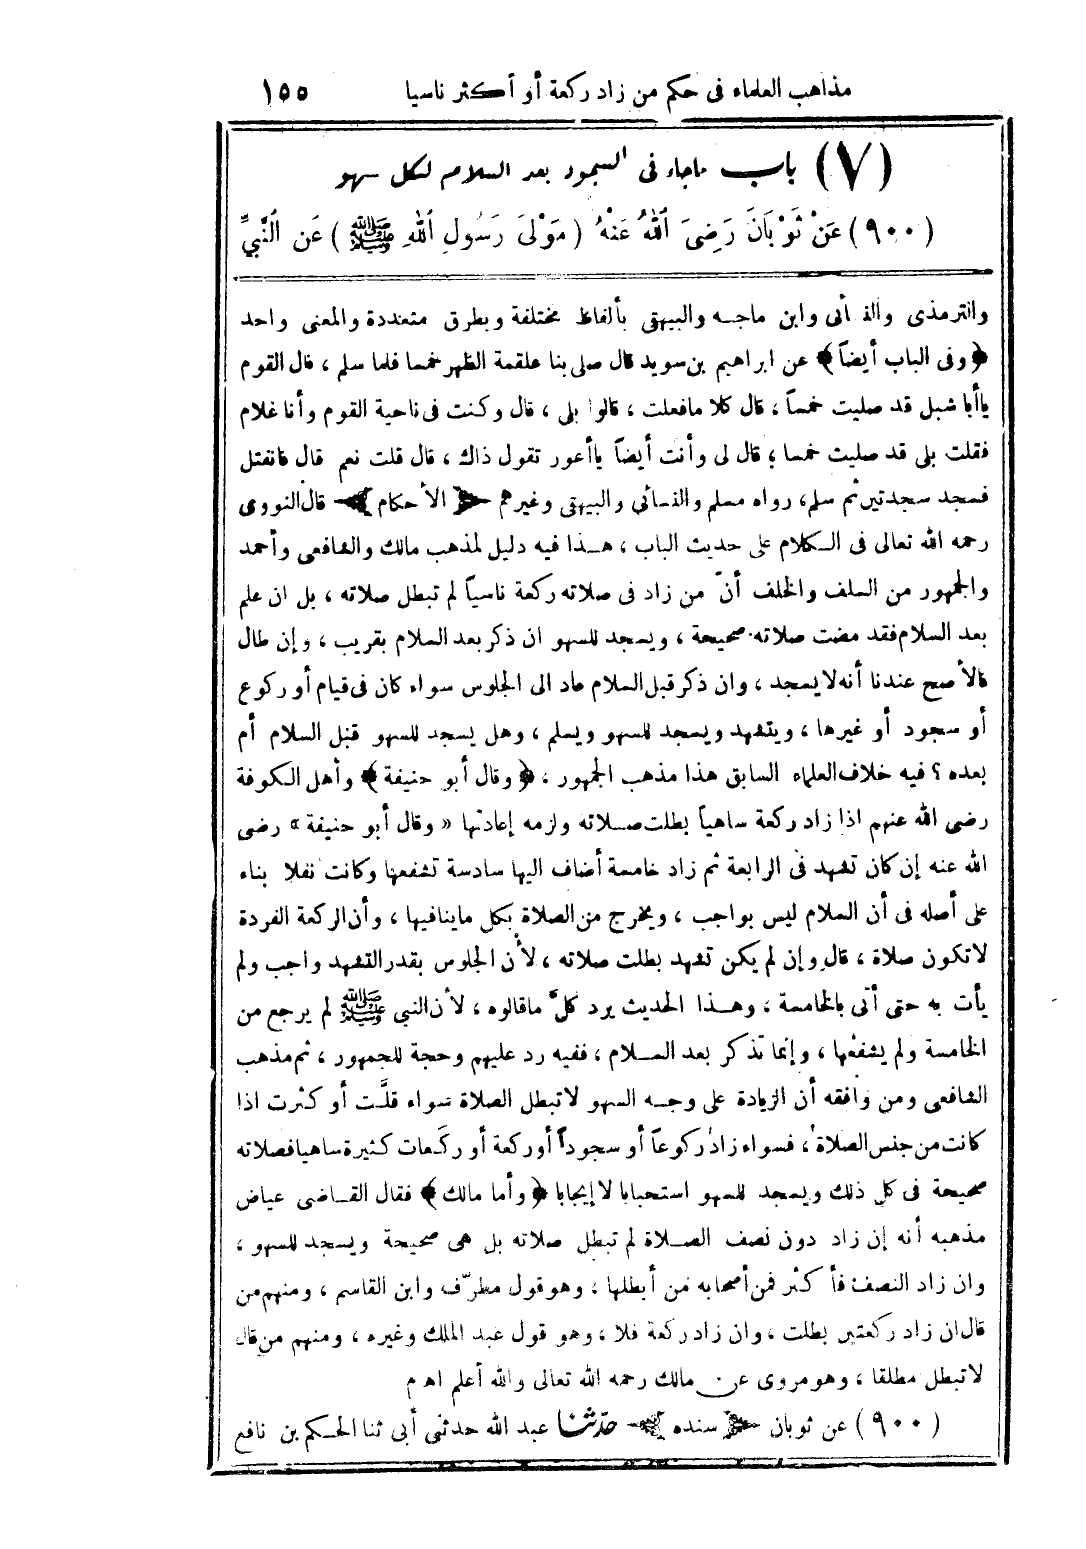 مذاهب العلماء فى حكم من زاد ركعة أو أكثر ناسيا ١٥٥
(٧) باب ماجاء فى السجود بعد السلام لكل سهو
(٩٠٠) عَنْ ثَوْبَانَ رَضِىَ ٱللهُ عَنْهُ (مَوْلَى رَسُولِ ٱللهِ ﷺ) عَنِ ٱلنَّبِيِّ
والترمذى والنسائى وابن ماجه والبيهقى بألفاظ مختلفة وبطرق متعددة والمعنى واحد
﴿وفى الباب أيضاً﴾ عن ابراهيم بن سويد قال صلى بنا علقمة الظهر خمسا فلما سلم ، قال القوم
ياأبا شبل قد صليت خمساً ، قال كلا مافعلت ، قالوا بلى ، قال وكنت فى ناحية القوم وأنا غلام
فقلت بلى قد صليت خمسا ؛ قال لى وأنت أيضاً ياأعور تقول ذاك ، قال قلت نعم قال فانفتل
فسجد سجدتين ثم سلم، رواه مسلم والنسائى والبيهقى وغيرهم ﴿الأحكام﴾ قال النووى
رحمه الله تعالى فى الكلام على حديث الباب ، هذا فيه دليل لمذهب مالك والشافعى وأحمد
والجمهور من السلف والخلف أنّ من زاد فى صلاته ركعة ناسياً لم تبطل صلاته ، بل ان علم
بعد السلام فقد مضت صلاته صحيحة ، ويسجد للسهو ان ذكر بعد السلام بقريب ، وإن طال
فالأصح عندنا أنه لا يسجد ، وان ذكر قبل السلام عاد الى الجلوس سواء كان فى قيام أو ركوع
أو سجود أو غيرها ، ويتشهد ويسجد للسهو ويسلم ، وهل يسجد للسهو قبل السلام أم
بعده ؟ فيه خلاف العلماء السابق هذا مذهب الجمهور ، ﴿وقال أبو حنيفة﴾ وأهل الكوفة
رضى الله عنهم اذا زاد ركعة ساهياً بطلت صلاته ولزمه إعادتها « وقال أبو حنيفة » رضى
الله عنه إن كان تشهد فى الرابعة ثم زاد خامسة أضاف اليها سادسة تشفعها وكانت نفلا بناء
على أصله فى أن السلام ليس بواجب ، ويخرج من الصلاة بكل ماينافيها ، وأن الركعة الفردة
لا تكون صلاة ، قال وإن لم يكن تشهد بطلت صلاته ، لأن الجلوس بقدر التشهد واجب ولم
يأت به حتى أتى بالخامسة ، وهذا الحديث يرد كلَّ ماقالوه ، لأن النبى ﷺ لم يرجع من
الخامسة ولم يشفعها ، وإنما تذكر بعد السلام ، ففيه رد عليهم وحجة للجمهور ، ثم مذهب
الشافعى ومن وافقه أن الزيادة على وجه السهو لا تبطل الصلاة سواء قلَّت أو كثرت اذا
كانت من جنس الصلاة ، فسواء زاد ركوعاً أو سجوداً أو ركعة أو ركعات كثيرة ساهيا فصلاته
صحيحة فى كل ذلك ويسجد للسهو استحبابا لا إيجابا ﴿وأما مالك﴾ فقال القاضى عياض
مذهبه أنه إن زاد دون نصف الصلاة لم تبطل صلاته بل هى صحيحة ويسجد للسهو ،
وان زاد النصف فأكثر فمن أصحابه من أبطلها ، وهو قول مطرّف وابن القاسم ، ومنهم من
قال ان زاد ركعتين بطلت ، وان زاد ركعة فلا ، وهو قول عبد الملك وغيره ، ومنهم من قال
لا تبطل مطلقا ، وهو مروى عن مالك رحمه الله تعالى والله أعلم اهـ م
(٩٠٠) عن ثوبان ﴿سنده﴾ حدّثنا عبد الله حدثنى أبى ثنا الحكم بن نافع